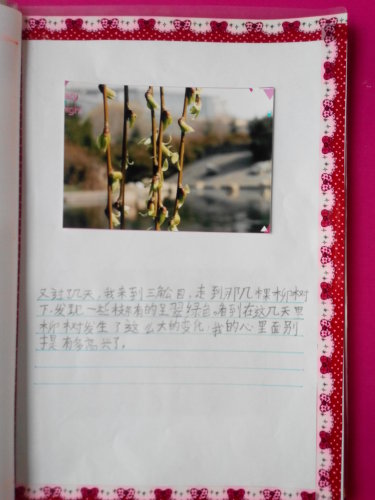 又过几天，我来到三舱目，走到那几棵柳树
下，发现一些树有的呈翠绿色。看到在这几天里
柳树发生了这么大的变化，我的心里面别
提有多高兴了。